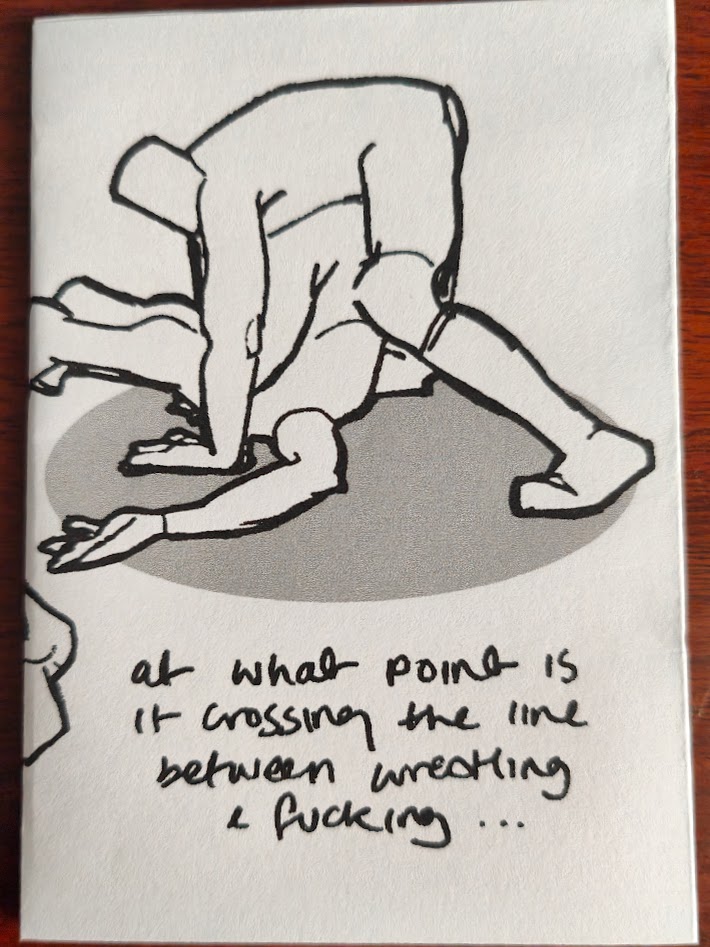 at what point is
it crossing the line
between wrestling
& fucking ...